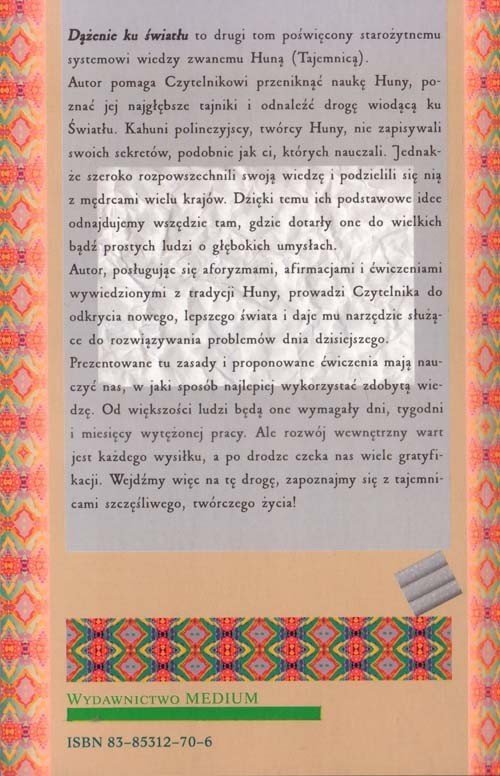 Dążenie ku światłu to drugi tom poświęcony starożytnemu
systemowi wiedzy zwanemu Huną (Tajemnicą).
Autor pomaga Czytelnikowi przeniknąć naukę Huny, po-
znać jej najgłębsze tajniki i odnaleźć drogę wiodącą ku
Światłu. Kahuni polinezyjscy, twórcy Huny, nie zapisywali
swoich sekretów, podobnie jak ci, których nauczali. Jednak-
że szeroko rozpowszechnili swoją wiedzę i podzielili się nią
z mędrcami wielu krajów. Dzięki temu ich podstawowe idee
odnajdujemy wszędzie tam, gdzie dotarły one do wielkich
bądź prostych ludzi o głębokich umysłach.
Autor, posługując się aforyzmami, afirmacjami i ćwiczeniami
wywiedzionymi z tradycji Huny, prowadzi Czytelnika do
odkrycia nowego, lepszego świata i daje mu narzędzie służą-
ce do rozwiązywania problemów dnia dzisiejszego.
Prezentowane tu zasady i proponowane ćwiczenia mają nau-
czyć nas, w jaki sposób najlepiej wykorzystać zdobytą wie-
dzę. Od większości ludzi będą one wymagały dni, tygodni
i miesięcy wytężonej pracy. Ale rozwój wewnętrzny wart
jest każdego wysiłku, a po drodze czeka nas wiele gratyfi-
kacji. Wejdźmy więc na tę drogę, zapoznajmy się z tajemni-
cami szczęśliwego, twórczego życia!
WYDAWNICTWO MEDIUM
ISBN 83-85312-70-6